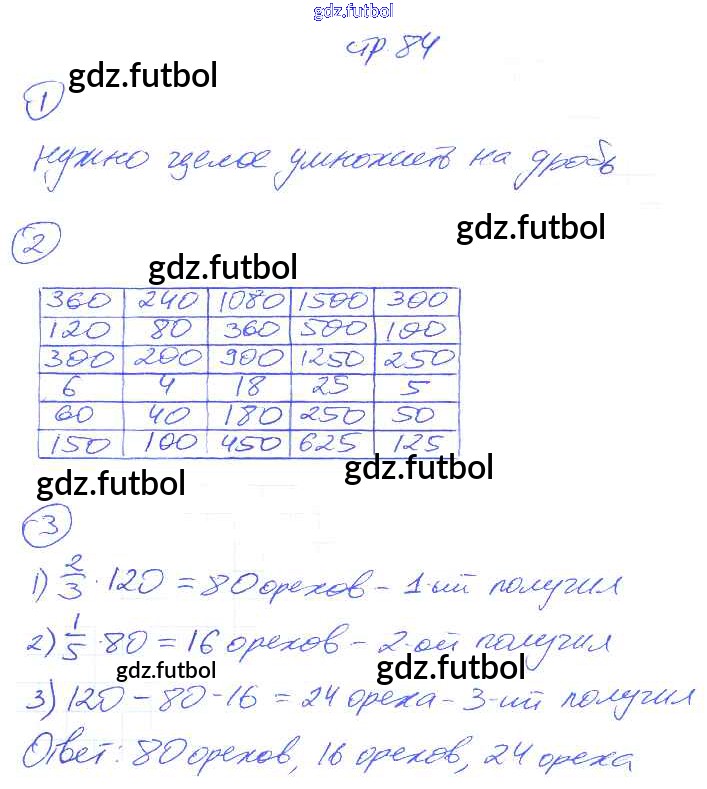 gdz.futbol
стр. 84
gdz.futbol
1
нужно целое умножить на дробь
gdz.futbol
2
gdz.futbol
360 240 1080 1500 300
120 80 360 500 100
300 200 900 1250 250
6 4 18 25 5
60 40 180 250 50
150 100 450 625 125
gdz.futbol gdz.futbol
3
1) 2/3 · 120 = 80 орехов – 1-ый получил
2) 1/5 · 80 = 16 орехов – 2-ой получил
gdz.futbol gdz.futbol
3) 120 – 80 - 16 = 24 ореха – 3-ий получил
Ответ: 80 орехов, 16 орехов, 24 ореха